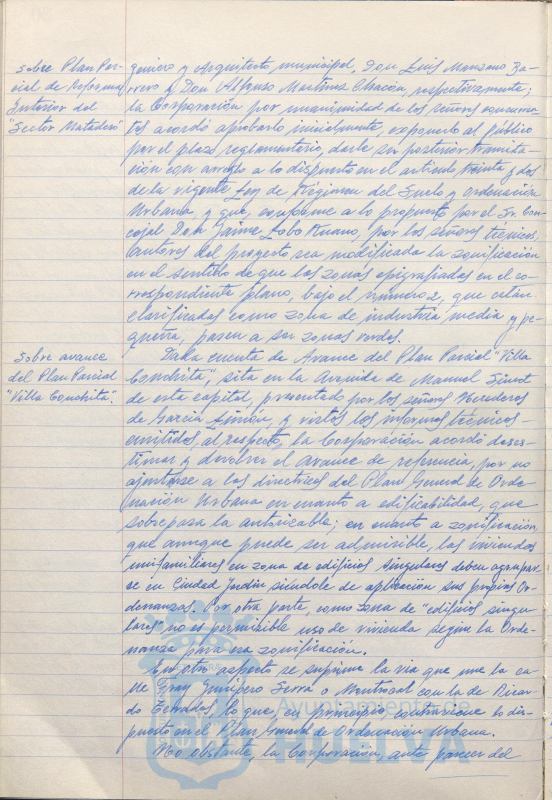 Sobre Plan Par-
cial de Reforma
Interior del
"Sector Matadero"
geniero y Arquitecto municipal, Don Luis Manzano Ba-
rrero y Don Alfonso Martínez Chacón, respectivamente;
la Corporación por unanimidad de los señores concurren-
tes acordó aprobarlo inicialmente, exponerlo al público
por el plazo reglamentario, darle su posterior tramita-
ción con arreglo a lo dispuesto en el artículo treinta y dos
de la vigente Ley de Régimen del Suelo y Ordenación
Urbana, y que, conforme a lo propuesto por el Sr. Con-
cejal Don Jaime Lobo Ruano, por los señores técnicos,
autores del proyecto sea modificada la zonificación
en el sentido de que las zonas epigrafiadas en el co-
rrespondiente plano, bajo el número 2, que están
clarificadas como zona de industria media y pe-
queña, pasen a ser zonas verdes.
Sobre avance
del Plan Parcial
"Villa Conchita".
Dada cuenta de Avance del Plan Parcial "Villa
Conchita", sita en la Avenida de Manuel Siurot
de esta capital, presentado por los señores Herederos
de García Ximón, y vistos los informes técnicos
emitidos, al respecto, la Corporación acordó deses-
timar y devolver el avance de referencia, por no
ajustarse a las directrices del Plan General de Orde-
nación Urbana en cuanto a edificabilidad, que
sobrepasa la autorizable; en cuanto a zonificación,
que aunque puede ser admisible, las viviendas
unifamiliares en zona de edificios singulares deben agrupar-
se en Ciudad Jardín siéndole de aplicación sus propias Or-
denanzas. Por otra parte, como zona de "edificios singu-
lares" no es permisible uso de vivienda según la Orde-
nanza para esa zonificación.
En otro aspecto se suprime la vía que une la ca-
lle Fray Junípero Serra o Montrocal con la de Ricar-
do Terrades, lo que, en principio contradice lo dis-
puesto en el Plan General de Ordenación Urbana.
No obstante, la Corporación, ante parecer del
Ayuntamiento de
HUELVA